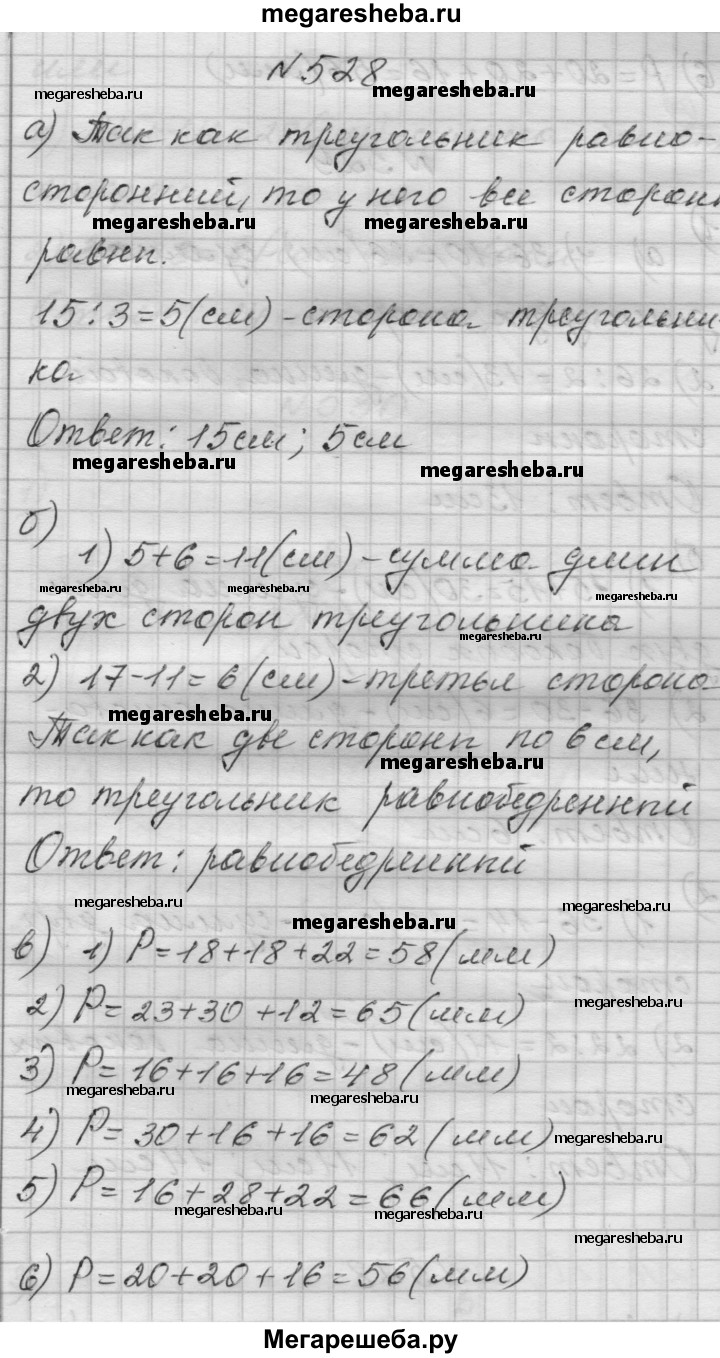 megaresheba.ru
№528
megaresheba.ru megaresheba.ru
а) Так как треугольник равно-
сторонний, то у него все сторон
megaresheba.ru megaresheba.ru
равны.
15:3=5(см)-сторона треугольни
ка
Ответ: 15см; 5см
megaresheba.ru megaresheba.ru
б)
1) 5+6=11(см)-сумма длин
megaresheba.ru megaresheba.ru megaresheba.ru
двух сторон треугольника
megaresheba.ru
2) 17-11=6(см)-третья сторона
megaresheba.ru
Так как две стороны по 6см,
megaresheba.ru
то треугольник равнобедренный
Ответ: равнобедренный
megaresheba.ru megaresheba.ru
megaresheba.ru
в) 1) P=18+18+22=58(мм)
megaresheba.ru
2) P=23+30+12=65(мм)
3) P=16+16+16=48(мм)
megaresheba.ru megaresheba.ru
4) P=30+16+16=62(мм)
megaresheba.ru
5) P=16+28+22=66(мм)
megaresheba.ru megaresheba.ru
megaresheba.ru
6) P=20+20+16=56(мм)
Мегарешеба.ру